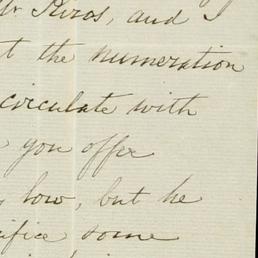 Rivas, and I
the numeration
circulate with
you offer
how, but he
some